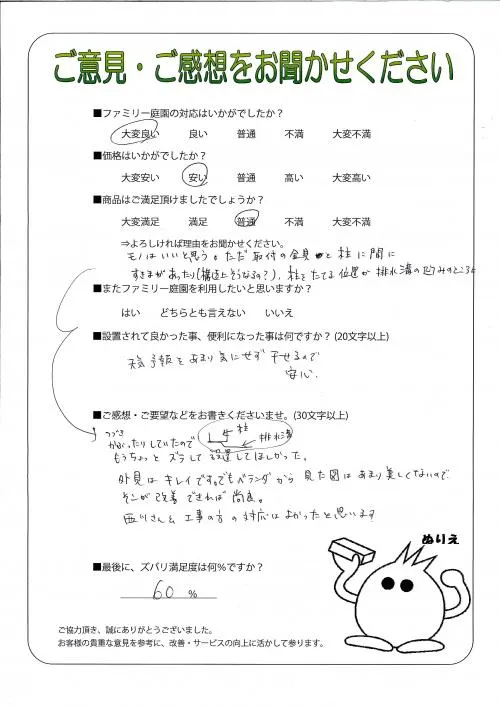 ご意見・ご感想をお聞かせください
■ファミリー庭園の対応はいかがでしたか？
大変良い 良い 普通 不満 大変不満
■価格はいかがでしたか？
大変安い 安い 普通 高い 大変高い
■商品はご満足頂けましたでしょうか？
大変満足 満足 普通 不満 大変不満
⇒よろしければ理由をお聞かせください。
モノはいいと思う。ただ取付の金具と柱に間に
すきまがあったり(構造上そうなるの？)、柱をたてる位置が排水溝の凹みのところに
■またファミリー庭園を利用したいと思いますか？
はい どちらとも言えない いいえ
■設置されて良かった事、便利になった事は何ですか？(20文字以上)
天気予報をあまり気にせず干せるので
安心。
■ご感想・ご要望などをお書きくださいませ。(30文字以上)
つづき
かぶったりしていたので
柱
排水溝
もうちょっとズラして設置してほしかった。
外見はキレイです。でもベランダから見た図はあまり美しくないので
そこが改善できれば尚良。
西川さんも工事の方の対応はよかったと思います
ぬりえ
■最後に、ズバリ満足度は何%ですか？
60 %
ご協力頂き、誠にありがとうございました。
お客様の貴重な意見を参考に、改善・サービスの向上に活かして参ります。